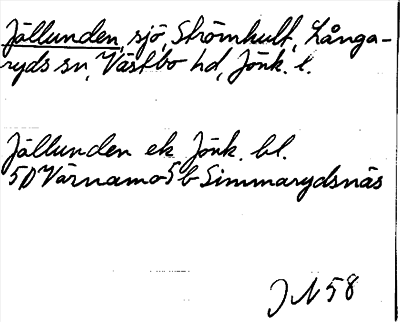 Jällunden, sjö, Strömhult, Långa-
ryds sn, Västbo hd, Jönk. l.
Jällunden ek Jönk. bl.
5D Värnamo 5b Simmarydsnäs
JN 58